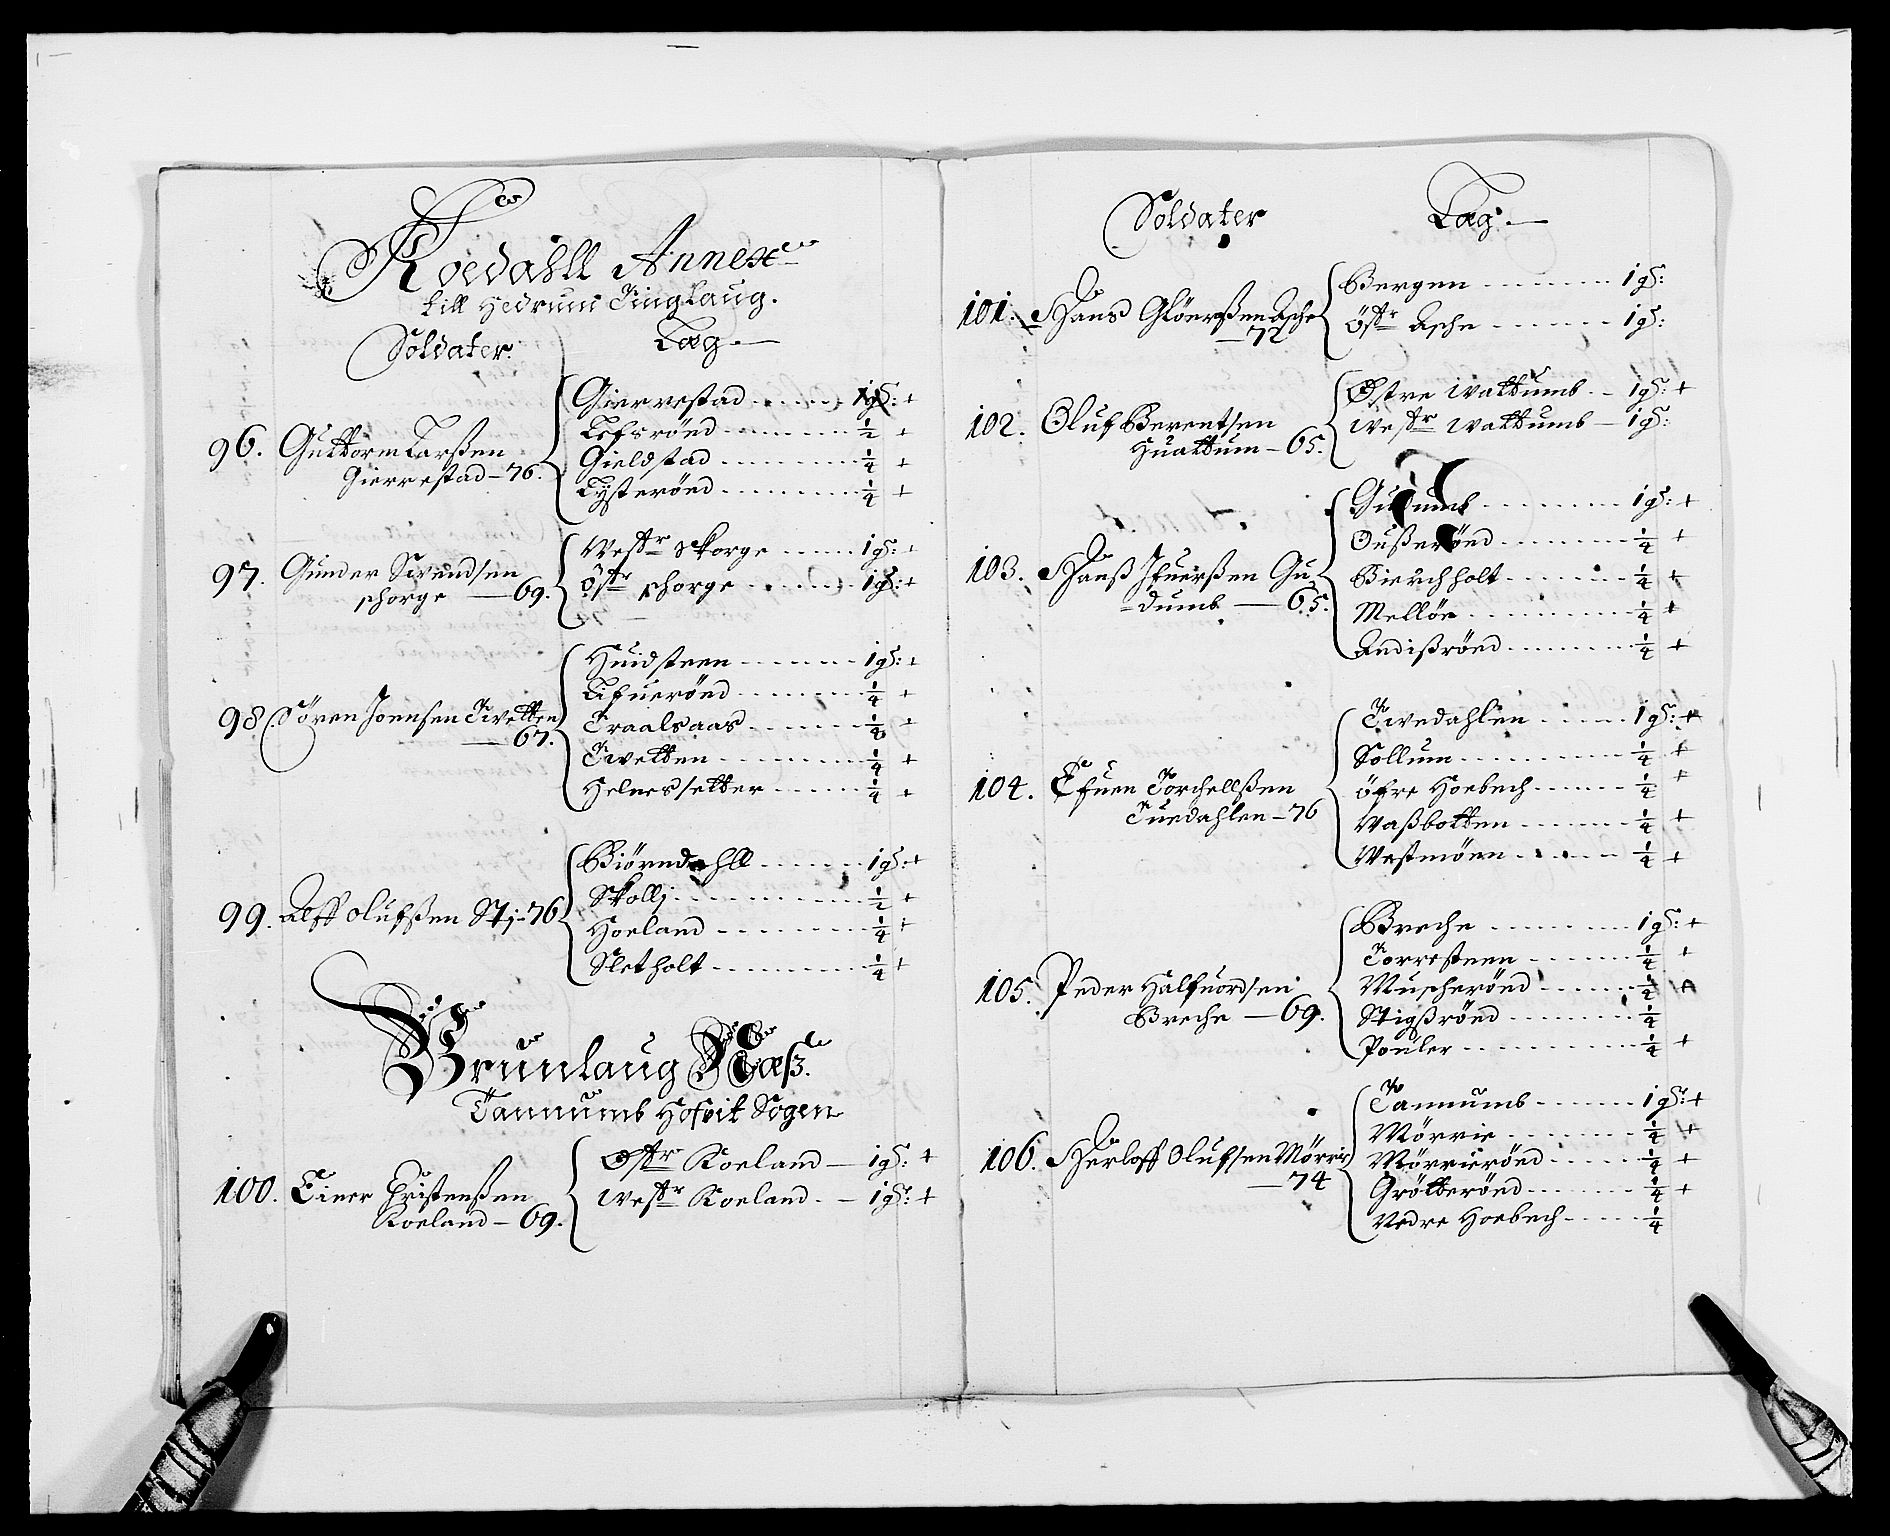 Koedahll Annex
till Hedrum Tinglaug.
Soldater. Læg.
96. Guttorm Larßen
Gierrestad - 76.
Gierrestad 1 gS: +
Lefsrönd ½ +
Gieldstad ¼ +
Lysterönd ¼ +
97. Gunder Swendsen
schorge - 69.
Westr Skorge 1 gS: +
östr schorge 1 gS: +
98. Sören Joensen Twetten
- 67.
Huidsteen 1 gS: +
Lifuerönd ¼ +
Traalsaas ¼ +
Twetten ¼ +
Helnessetter ¼ +
99. Alff olufßen Stj - 76
Biörndahll 1 gS: +
Skollj ½ +
Hoeland ¼ +
Sletholt ¼ +
Brunlaug Næß.
Tannumb Hofvit Sogen
100. Einer Christenßen
Koeland - 69.
Østr Koeland - 1 gS: +
westr Koeland - 1 gS: +
Soldater Læg:
101. Hans Glöerßen Asche
- 72
Bergen 1 gS:
östr Asche 1 gS:
102. Oluf Berentsen
Huattum - 65.
Østre wattumb - 1 gS: +
westr wattumb - 1 gS:
103. Hanß Ifuerßen Gu=
=dumb - 65.
Gudumb 1 gS: +
Oußerönd ¼ +
Bierchholt ¼ +
Mellöe ¼ +
Andißrönd ¼ +
104. Efuen Torchellßen
Tuedahlen - 76
Twedahlen 1 gS: +
Sollum ¼ +
öfre Hoebech ¼ +
Waßbotten ¼ +
Westmöen ¼ +
105. Peder Halfuordsen
Breche - 69.
Breche 1 gS: +
Torresteen ¼ +
Muscherönd ¼ +
Stigßrönd ¼
Pouler ¼ +
106. Herloff Olufsen Mörrie
- 74
Tannumb 1 gS: +
Mörrie ¼ +
Mörrierönd ¼ +
Grötterönd ¼ +
Nedre Hoebech ¼